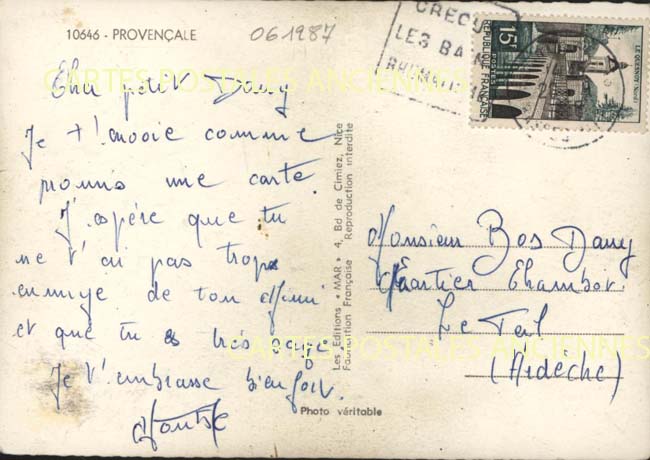 10646 - PROVENÇALE
061987
Cher petit Dany
Je t'envoie comme
promis une carte.
J'espère que tu
ne t'ai pas trop
ennuyé de ton
et que tu es très sage
Je t'embrasse bien fort.
Les Editions "MAR" 4, Bd de Cimiez, Nice
Fabrication Française Reproduction interdite
Photo véritable
GREOU
LES BAINS
RHUMATI
15F
POSTES
REPUBLIQUE FRANÇAISE
LE QUESNOY (NORD)
Monsieur Bos Dany
Quartier Chambot.
Le Teil
(Ardèche)
CARTES POSTALES ANCIENNES
CARTES POSTALES ANCIENNES